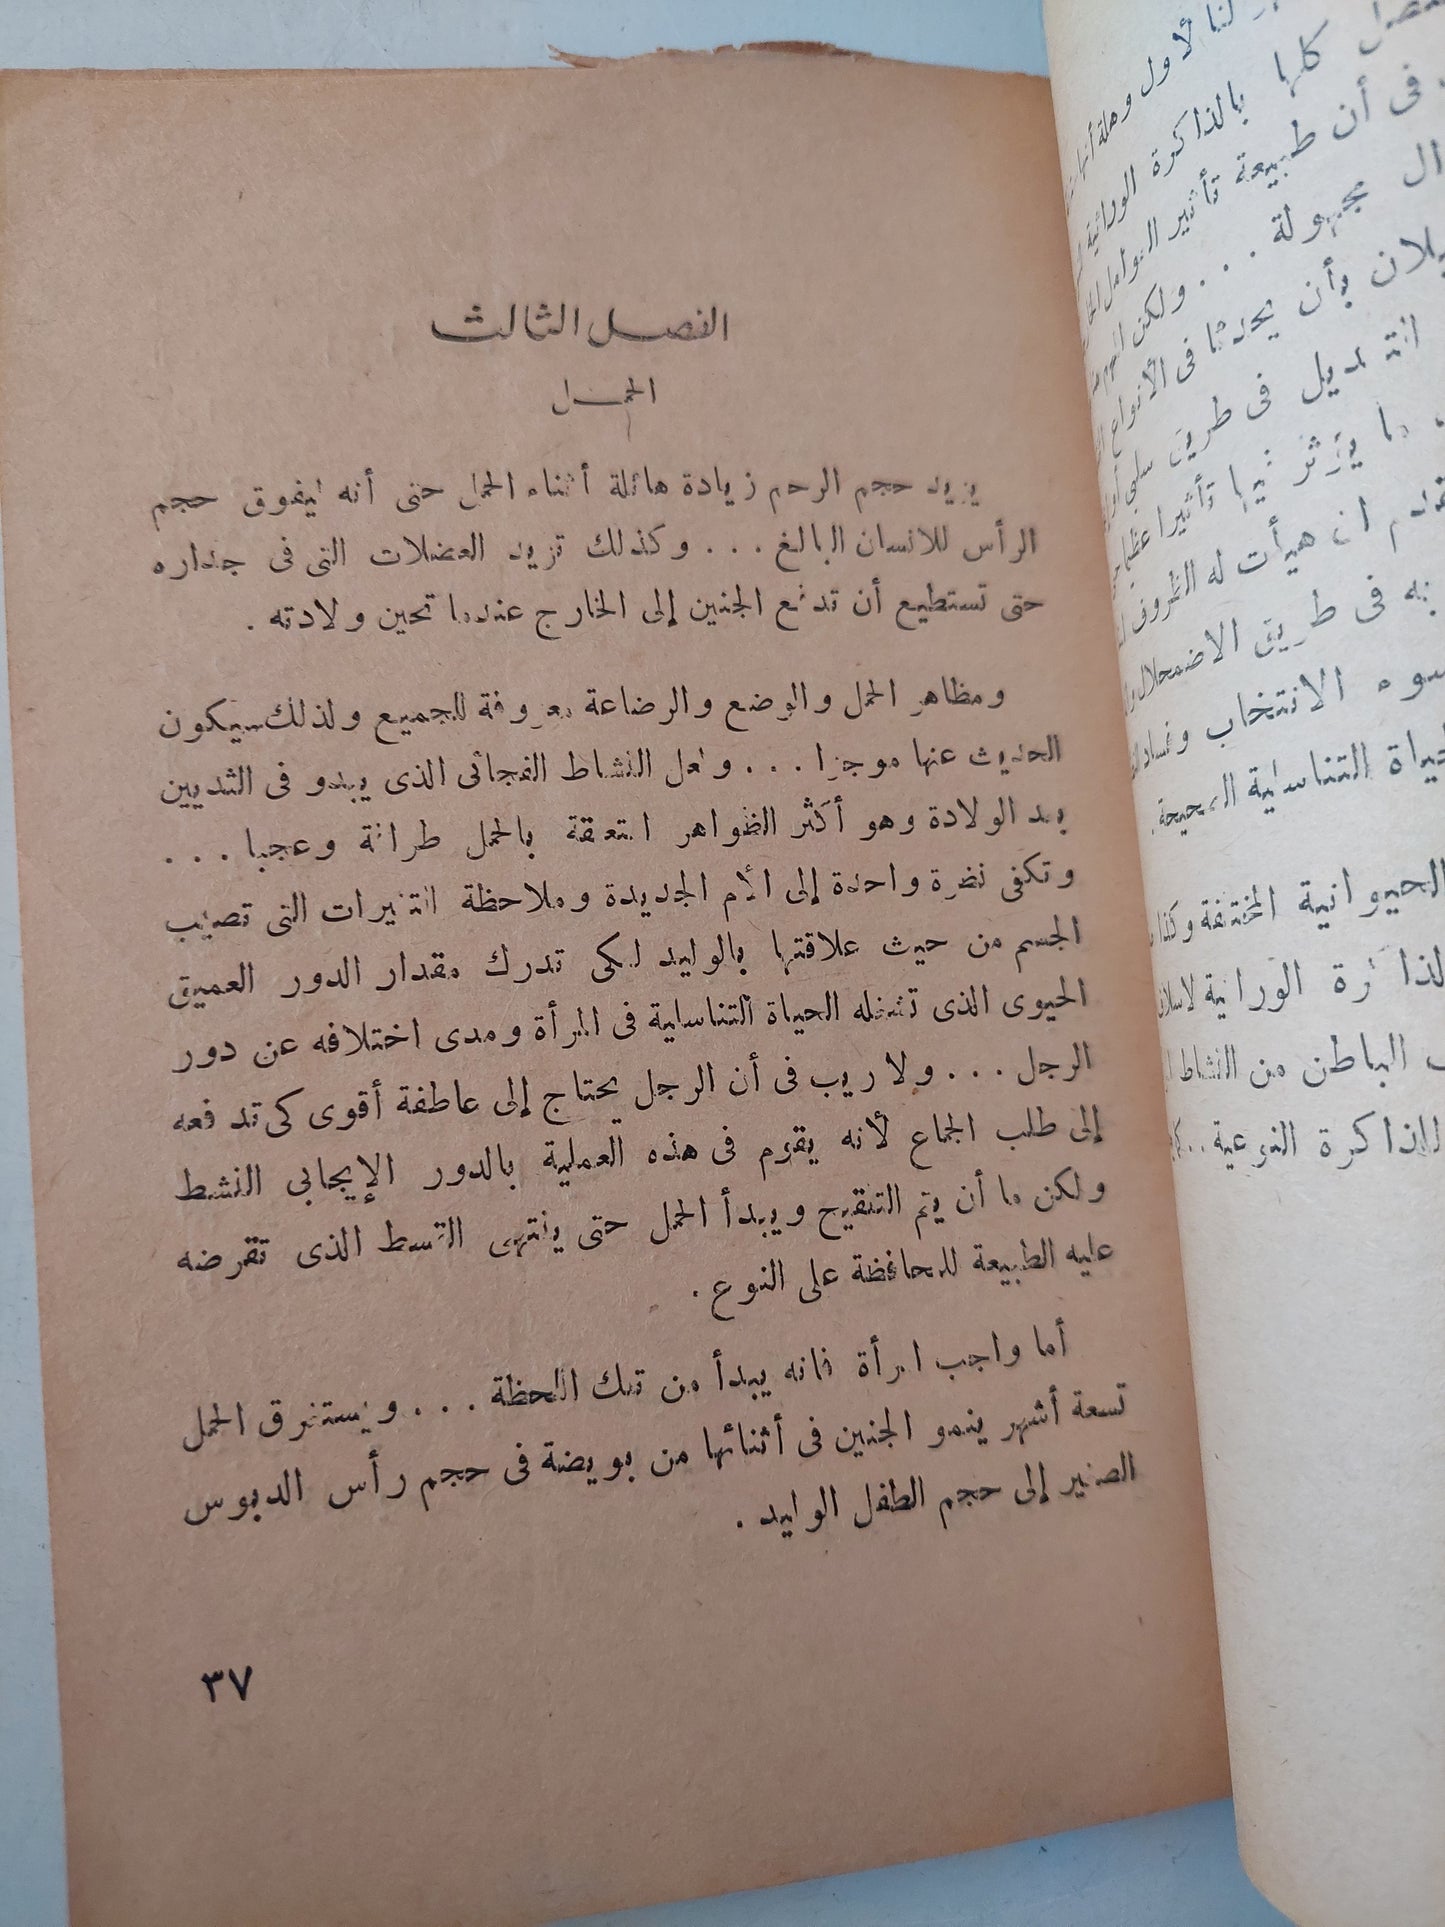 الفصل الثالث
الحمل
يزيد حجم الرحم زيادة هائلة أثناء الحمل حتى أنه ليفوق حجم
الرأس للانسان البالغ . . . وكذلك تزيد العضلات التى فى جداره
حتى تستطيع أن تدفع الجنين إلى الخارج عندما تحين ولادته .
ومظاهر الحمل والوضع والرضاعة معروفة للجميع ولذلك سيكون
الحديث عنها موجزا . . . ولعل النشاط الفجائى الذى يبدو فى الثديين
بعد الولادة وهو أكثر الظواهر المتعلقة بالحمل طرافة وعجبا . . .
وتكفى نظرة واحدة إلى الأم الجديدة وملاحظة التغيرات التى تصيب
الجسم من حيث علاقتها بالوليد لكى تدرك مقدار الدور العميق
الحيوى الذى تشغله الحياة التناسلية فى المرأة ومدى اختلافه عن دور
الرجل . . . ولا ريب فى أن الرجل يحتاج إلى عاطفة أقوى كى تدفعه
إلى طلب الجماع لأنه يقوم فى هذه العملية بالدور الإيجابى النشط
ولكن ما أن يتم التلقيح ويبدأ الحمل حتى ينتهى القسط الذى تفرضه
عليه الطبيعة للمحافظة على النوع .
أما واجب المرأة فانه يبدأ من تلك اللحظة . . . ويستغرق الحمل
تسعة أشهر ينمو الجنين فى أثنائها من بويضة فى حجم رأس الدبوس
الصغير إلى حجم الطفل الوليد .
٣٧
لأول وهلة
كلها بالذاكرة الوراثية
فى أن طبيعة تأثير العوامل
مجهولة . . . ولكن المهم
بأن يحدثا فى الأنواع
فى طريق
ما يؤثر فيها تأثيرا
ان هيأت له الظروف
به فى طريق الاضمحلال
سوء الانتخاب وفساد
الحياة التناسلية الصحيحة .
الحيوانية المختلفة وكذا
الوراثية
الباطن من النشاط
للذاكرة النوعية . .